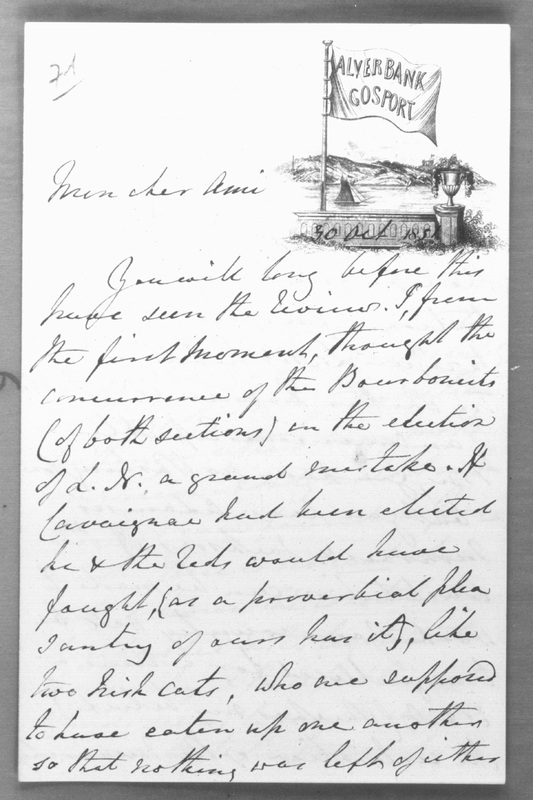 ALVERBANK
GOSPORT
Mon cher Ami
30 Oct 185
You will long before this
have seen the Review. I, from
the first moment, thought the
concurrence of the Bourbonists
(of both sections) in the election
of L. N. a grand mistake. If
Cavaignac had been elected
he & the Reds would have
fought, (as a proverbial plea
santry of ours has it), like
two Irish cats, who are supposed
to have eaten up one another
so that nothing was left of either